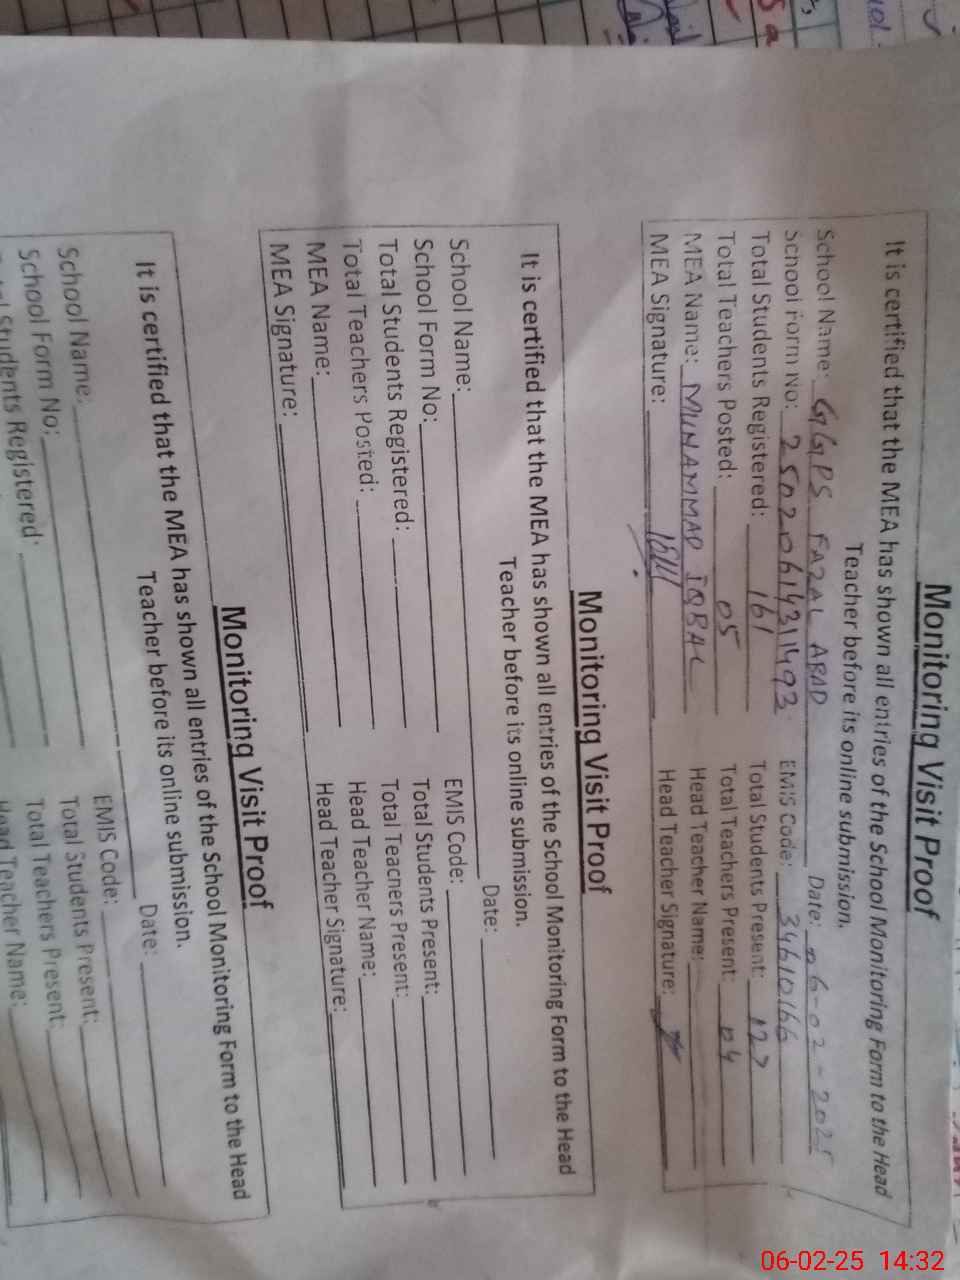 Monitoring Visit Proof
It is certified that the MEA has shown all entries of the School Monitoring Form to the Head
Teacher before its online submission.
School Name: GGPS FAZAL ABAD Date: 06-02-2025
School Form No: 25020614311493 EMIS Code: 34610166
Total Students Registered: 161 Total Students Present: 127
Total Teachers Posted: 05 Total Teachers Present: 04
MEA Name: MUHAMMAD IQBAL Head Teacher Name:
MEA Signature: Head Teacher Signature:
Monitoring Visit Proof
It is certified that the MEA has shown all entries of the School Monitoring Form to the Head
Teacher before its online submission.
School Name: Date:
School Form No: EMIS Code:
Total Students Registered: Total Students Present:
Total Teachers Posted: Total Teachers Present:
MEA Name: Head Teacher Name:
MEA Signature: Head Teacher Signature:
Monitoring Visit Proof
It is certified that the MEA has shown all entries of the School Monitoring Form to the Head
Teacher before its online submission.
School Name: Date:
School Form No: EMIS Code:
Students Registered: Total Students Present:
Total Teachers Present:
Head Teacher Name:
06-02-25 14:32